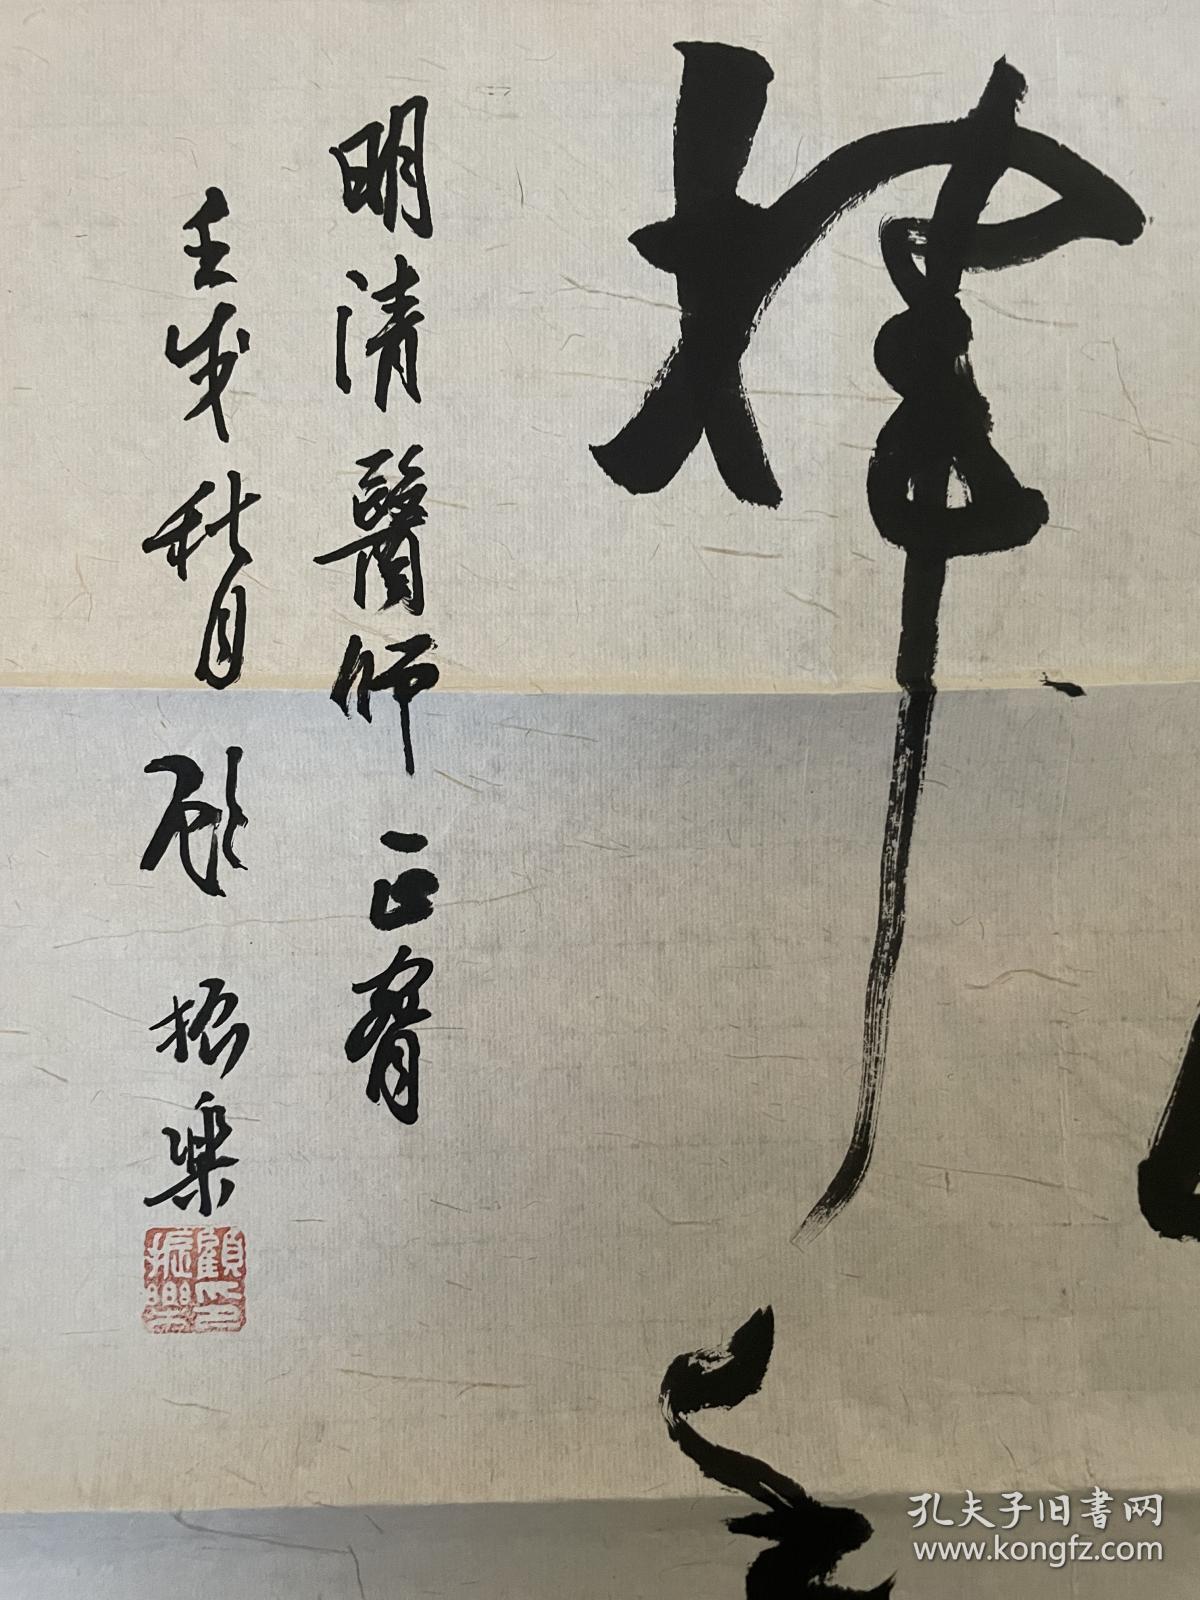 明清醫師正
壬戌秋月顧振樂
顧印振樂
孔夫子旧书网
www.kongfz.com